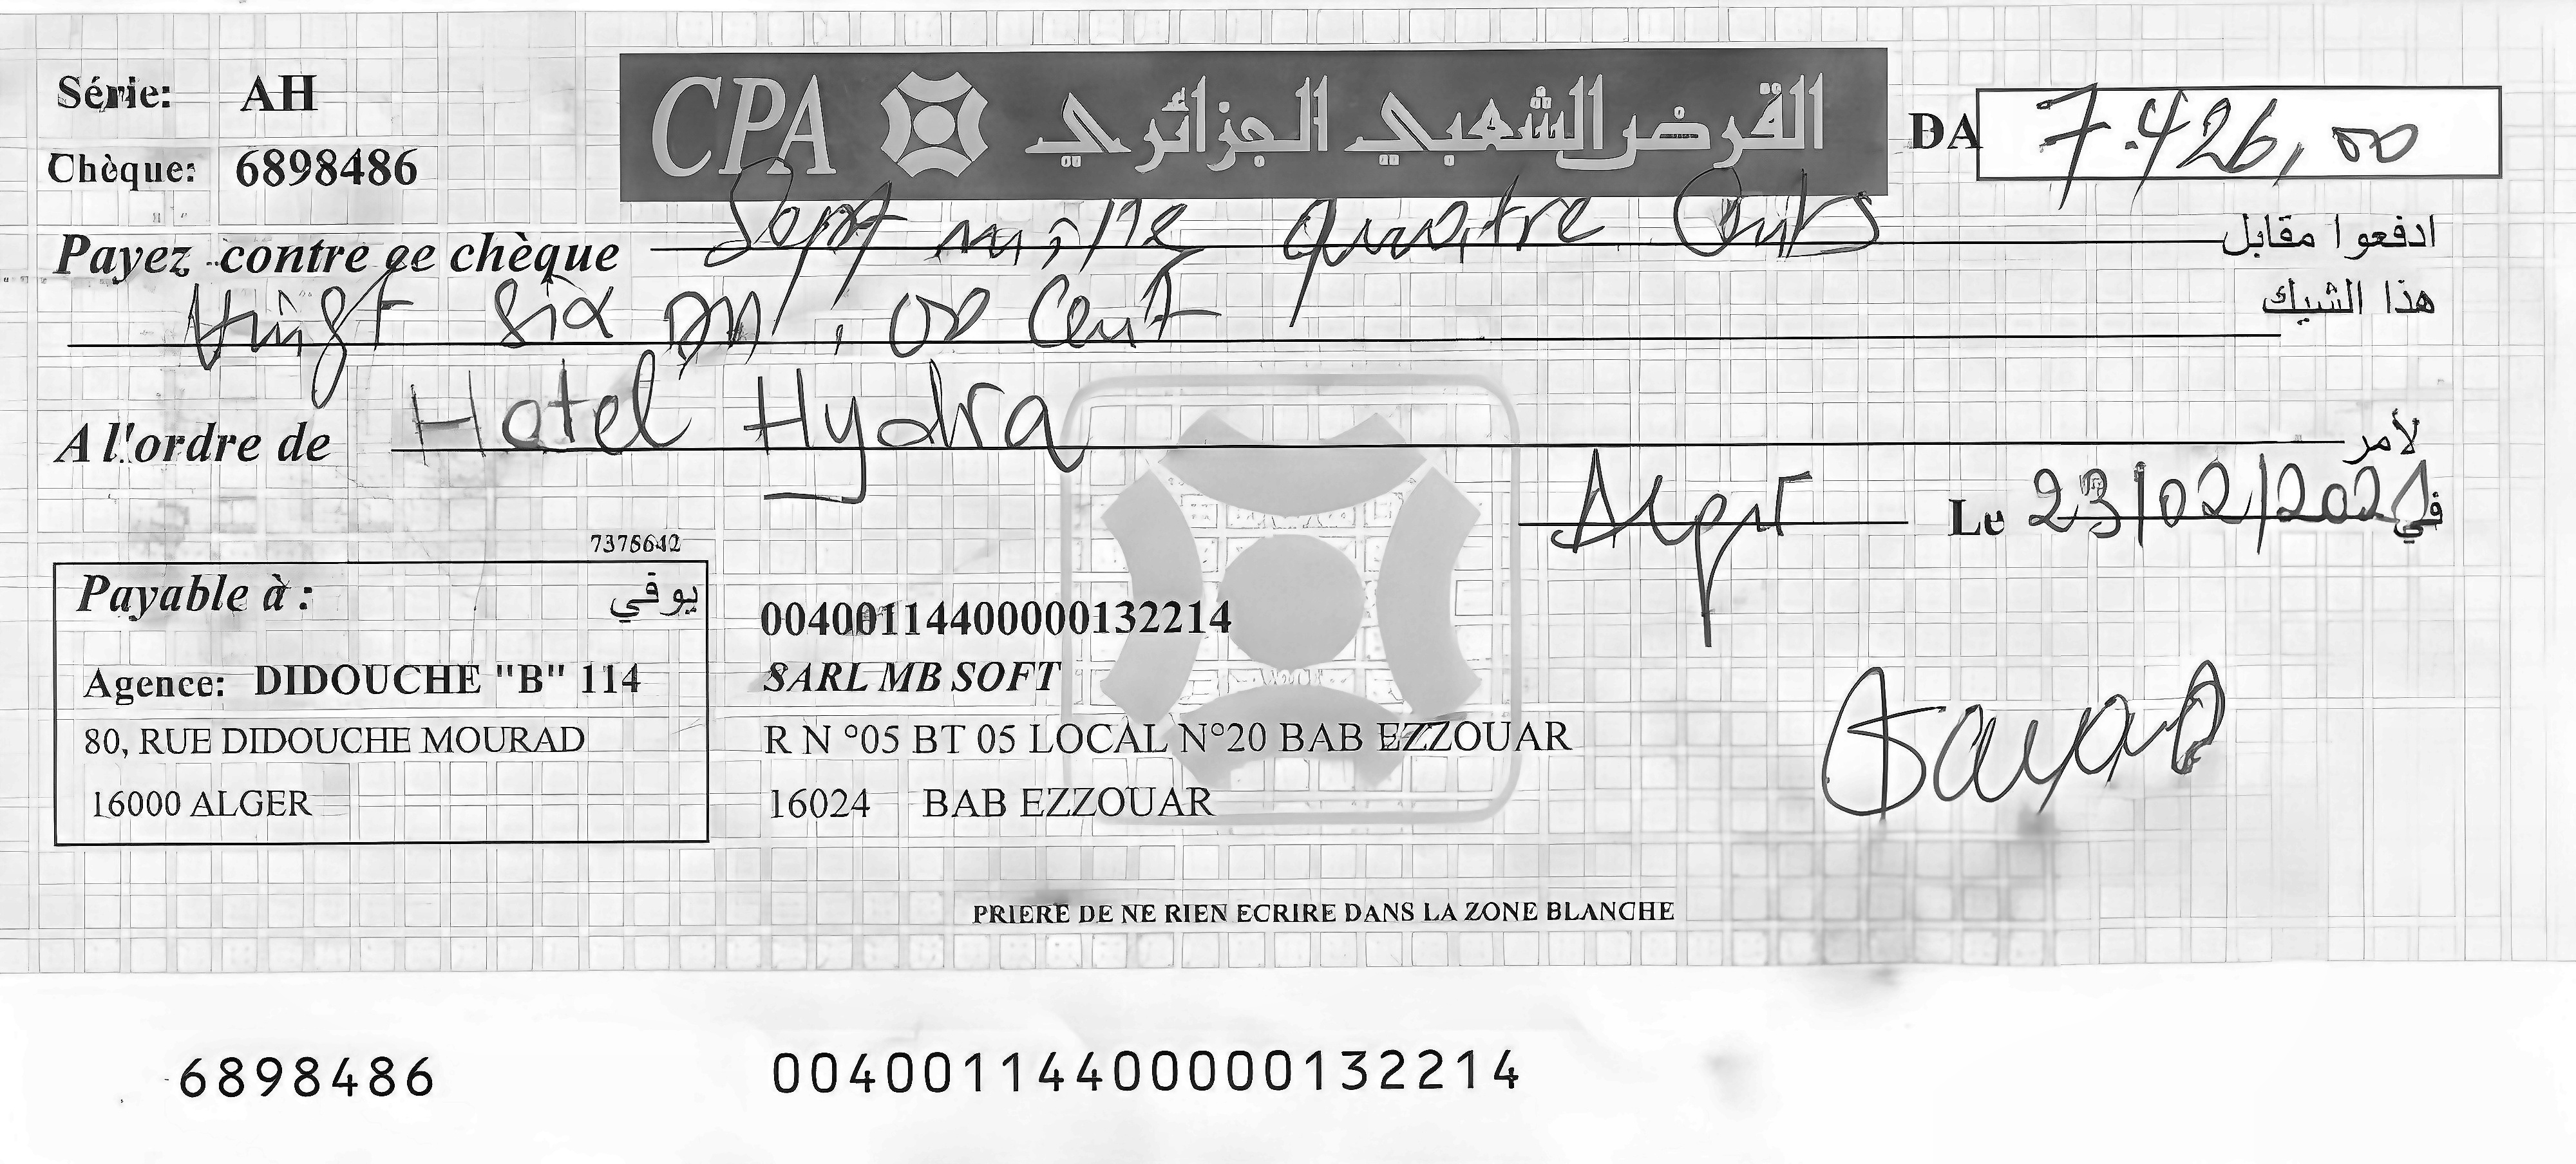 Série: AH
CPA القرض الشعبي الجزائري
DA 7.426,00
Chèque: 6898486
Payez contre ce chèque Sept mille quatre Cents ادفعوا مقابل
Vingt six DA, 00 Cent هذا الشيك
A l'ordre de Hotel Hydra لأمر
Alger Le 23/02/2021 في
7376642
Payable à : يوفي
Agence: DIDOUCHE "B" 114
80, RUE DIDOUCHE MOURAD
16000 ALGER
00400114400000132214
SARL MB SOFT
R N °05 BT 05 LOCAL N°20 BAB EZZOUAR
16024 BAB EZZOUAR
PRIERE DE NE RIEN ECRIRE DANS LA ZONE BLANCHE
6898486 00400114400000132214